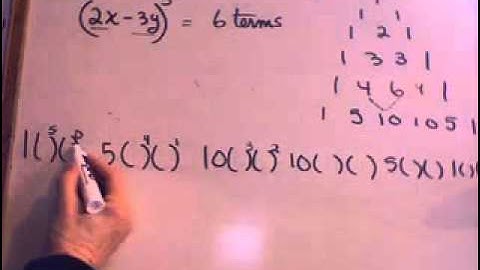 (2x - 3y)⁵ = 6 terms
1 1
1 2 1
1 3 3 1
1 4 6 4 1
1 5 10 10 5 1
1( )⁵( )⁰ 5( )⁴( )¹ 10( )³( )² 10( )( ) 5( )( ) 1( )(